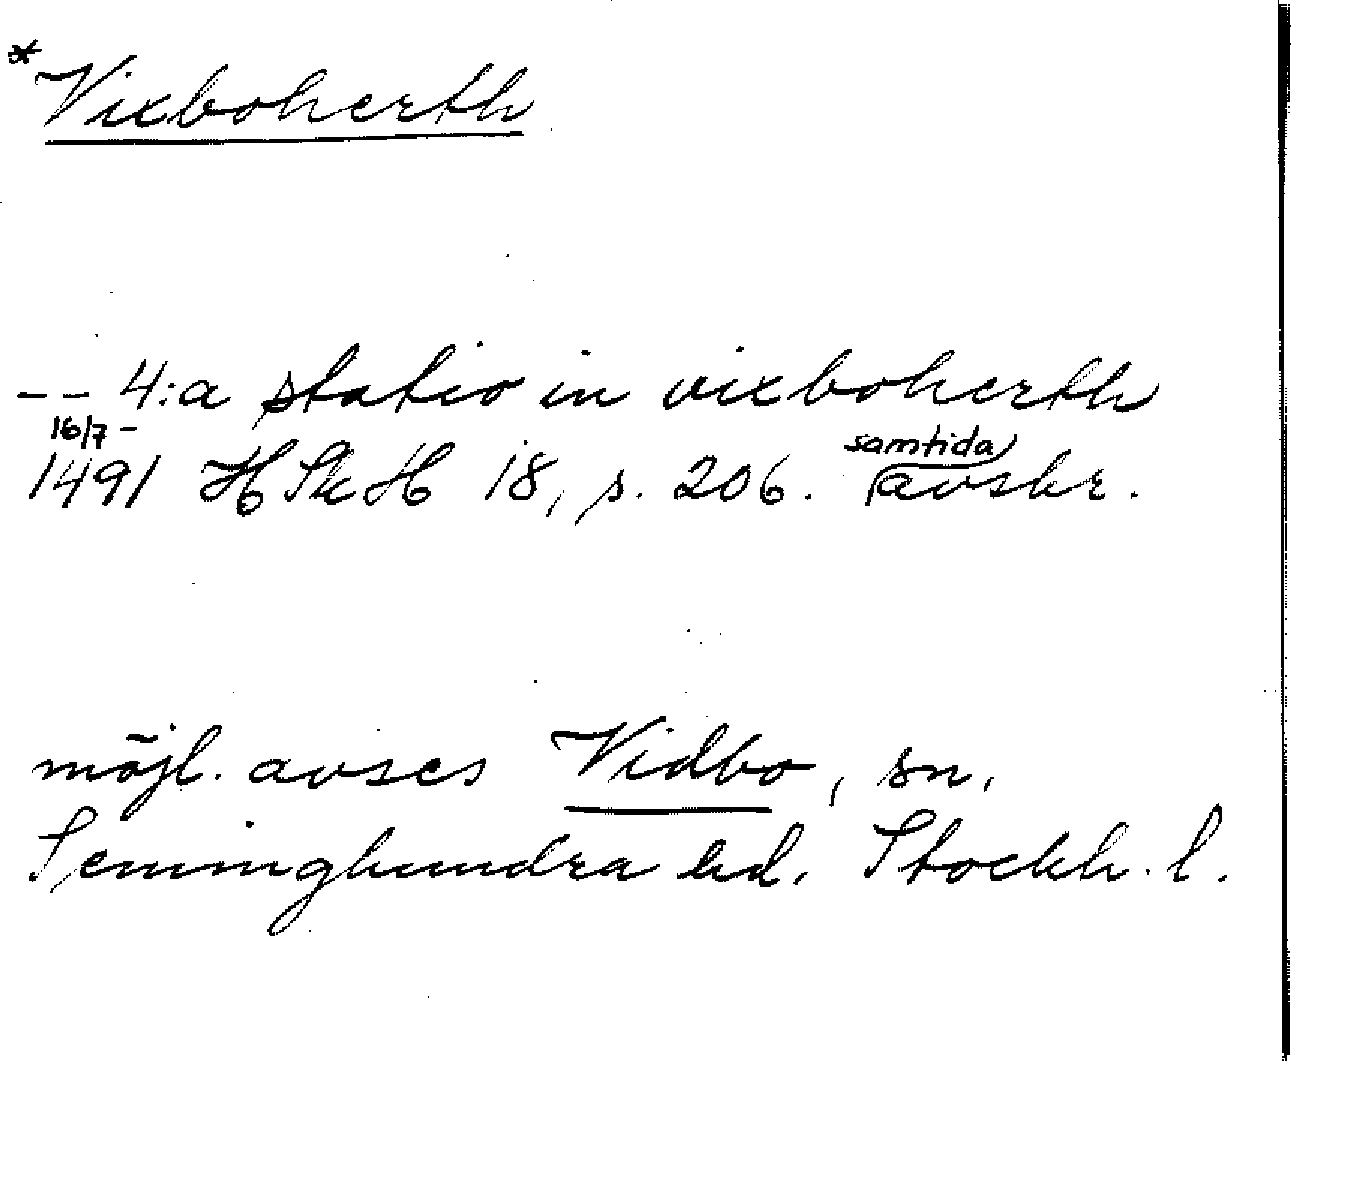 *Vixboherth
-- 4:a statio in vixboherth
16/7 -
samtida
1491 HSkH 18, s. 206. avskr.
möjl. avses Vidbo, sn,
Seminghundra hd. Stockh. l.